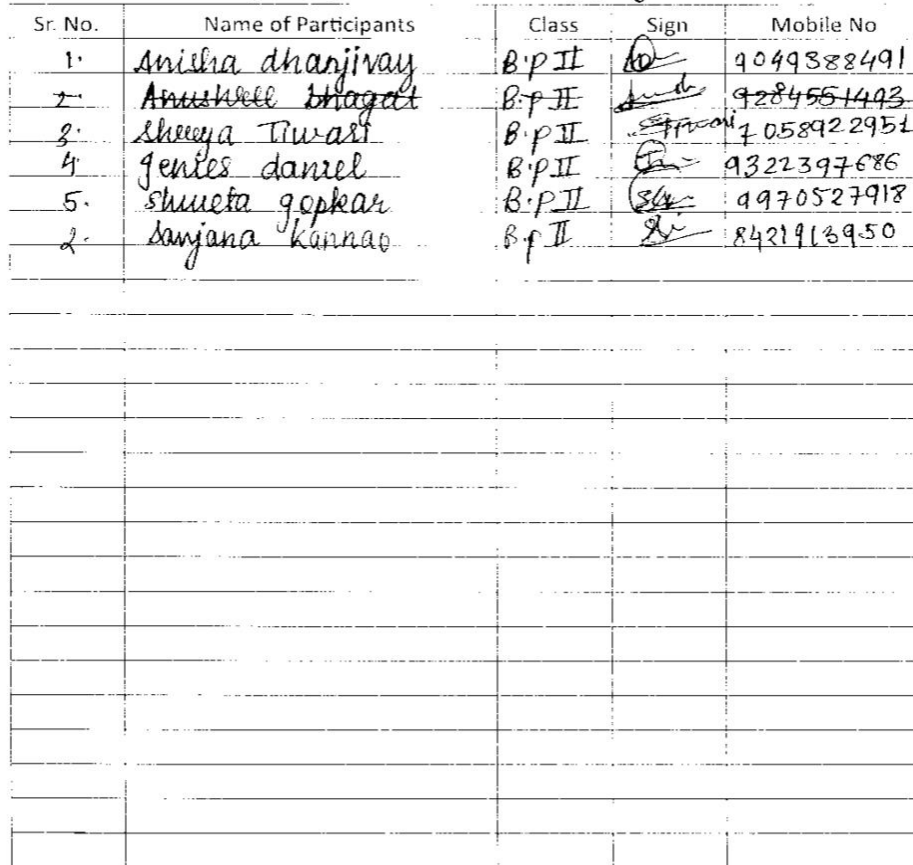 Sr. No. Name of Participants Class Sign Mobile No
1. Anisha dhanjivay B.P II 9049388491
2. Anushree bhagat B.P II 9284551493
3. Shreya Tiwari B.P II Tiwari 7058922951
4. Jenies daniel B.P II 9322397686
5. Shweta gopkar B.P II 9970527918
2. Sanjana Kannao B.P II 8421913950